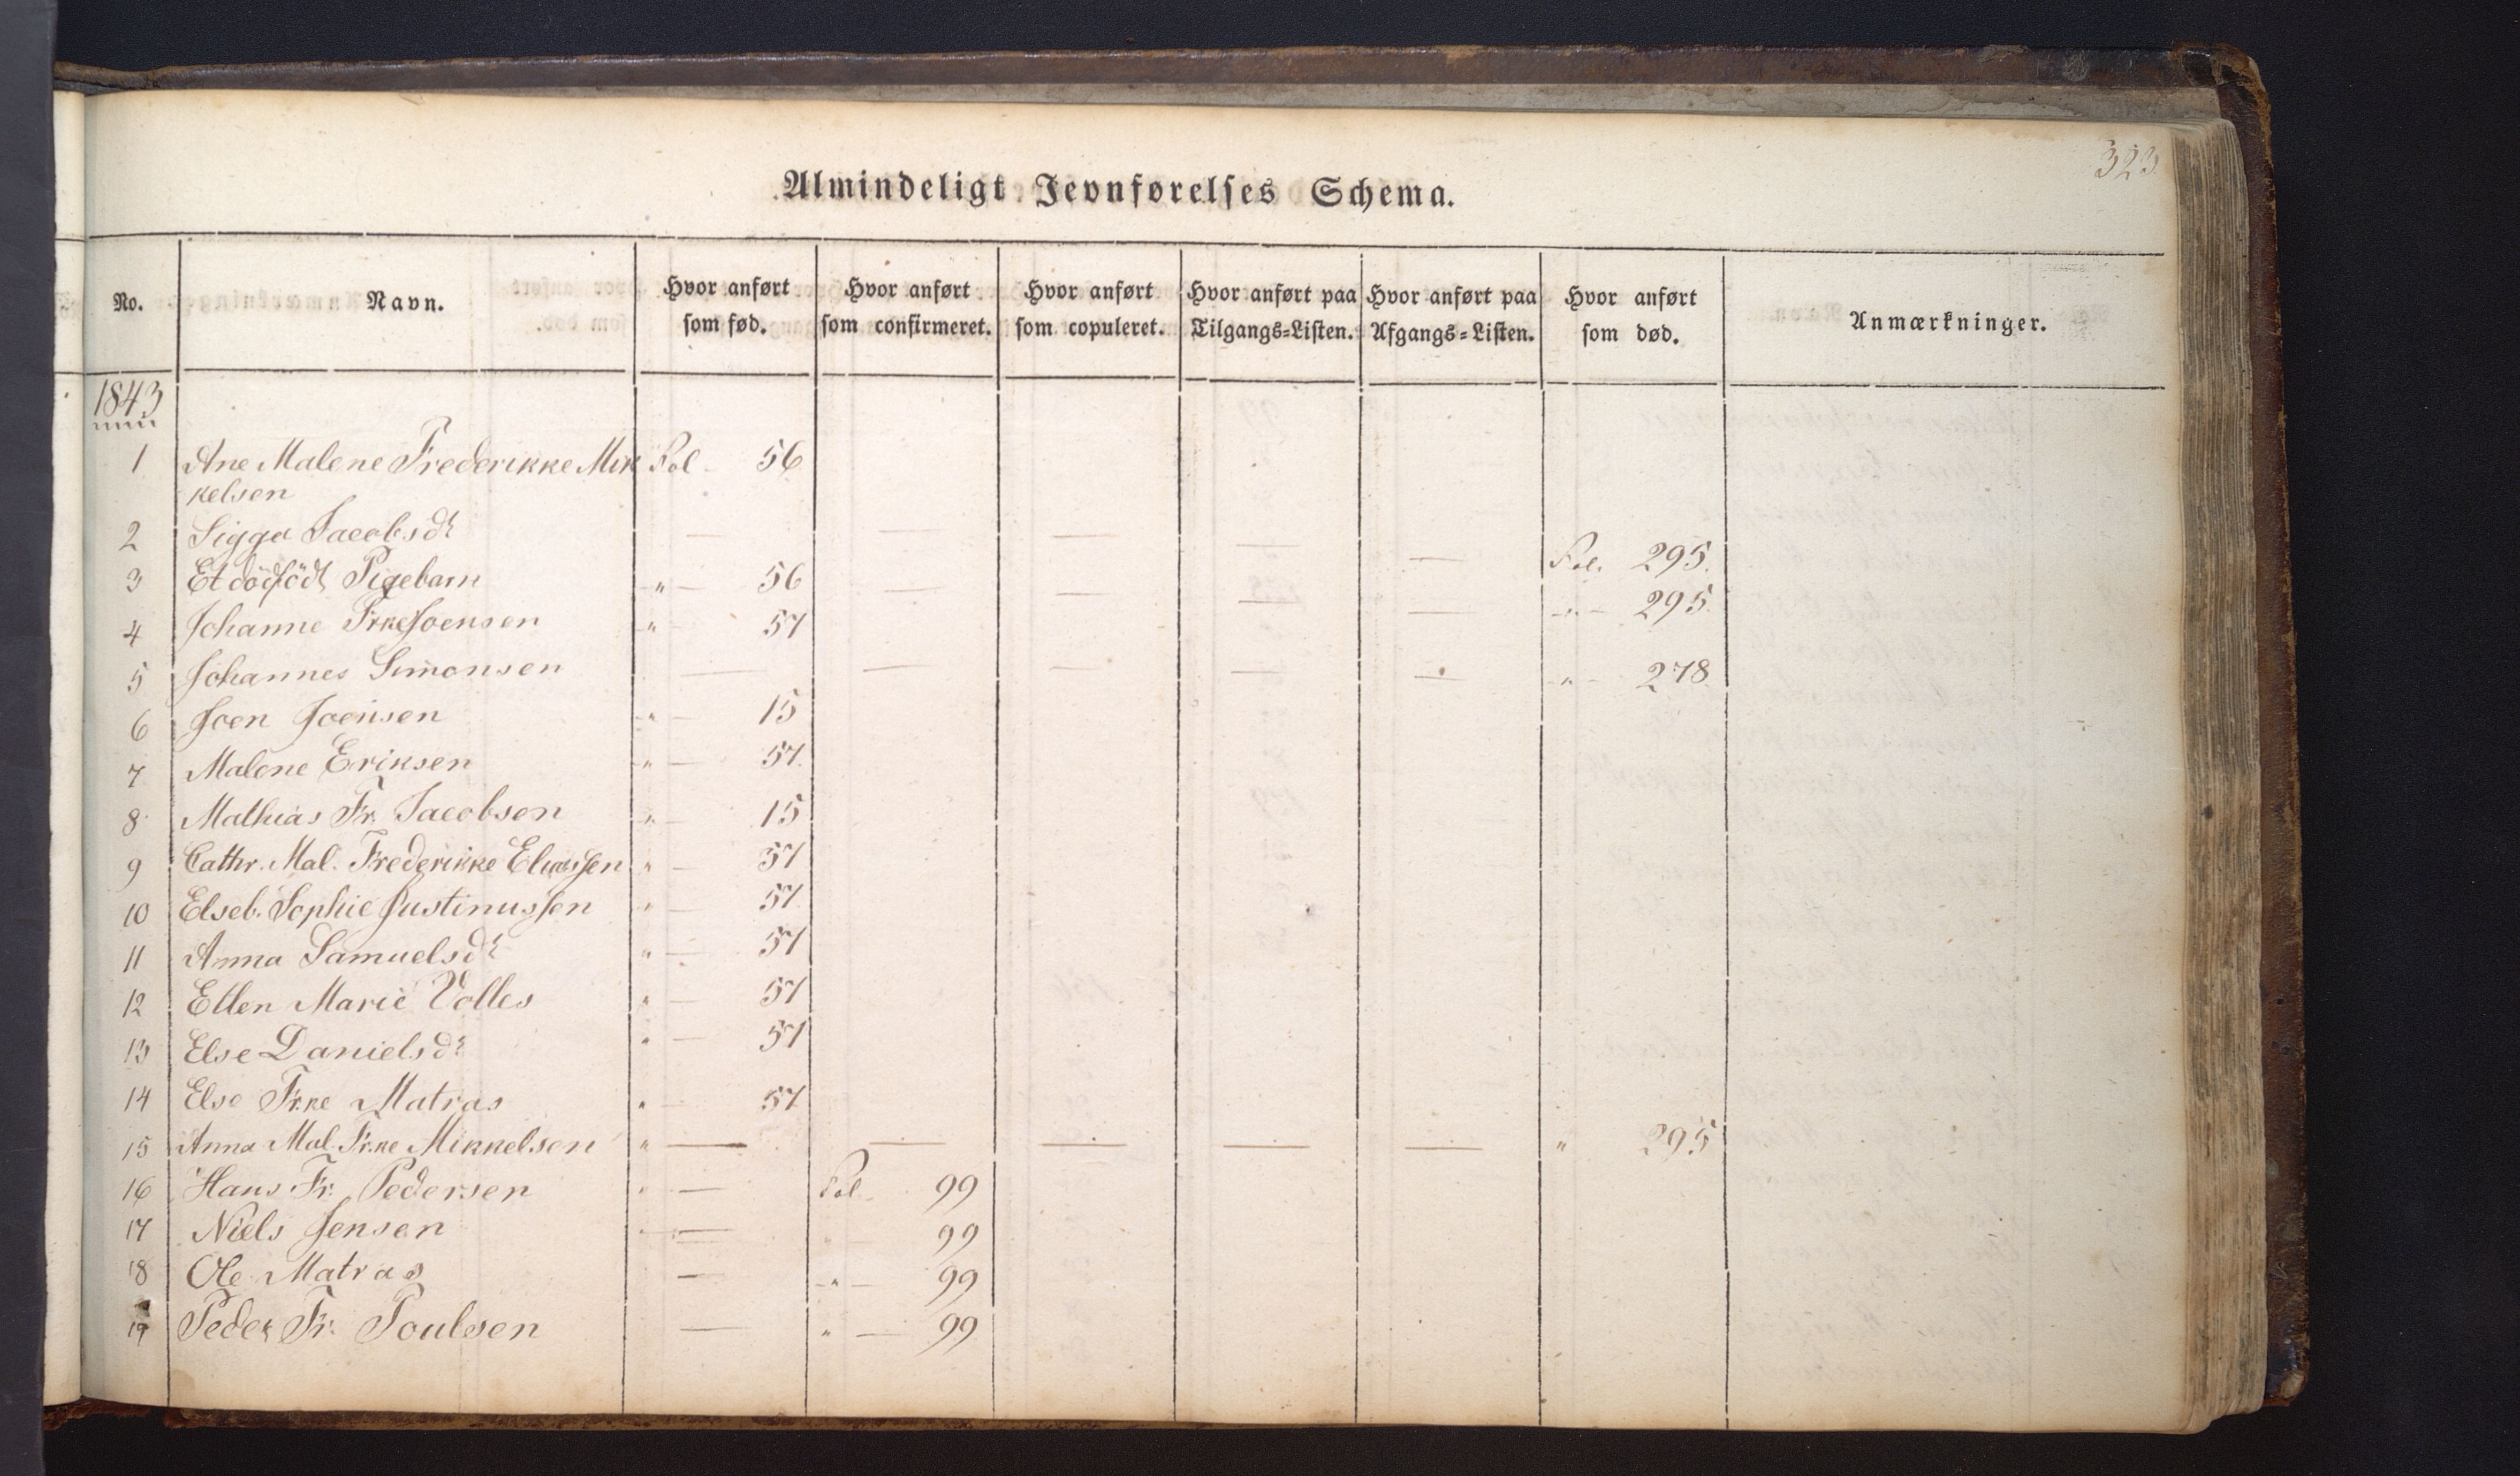 323
Almindeligt Jevnførelses Schema.
No. Navn. Hvor anført som fød. Hvor anført som confirmeret. Hvor anført som copuleret. Hvor anført paa Tilgangs=Listen. Hvor anført paa Afgangs=Listen. Hvor anført som død. Anmærkninger.
1843
1 Ane Malene Frederikke Mik Fol - 56
kelsen
2 Sigga Jacobsdr — — — — — Fol. 295.
3 Et dödfödt Pigebarn " — 56 — — — — " - 295.
4 Johanne Frke Joensen " 57
5 Johannes Simonsen — — — — — " - 278
6 Joen Joensen " — 15
7 Malene Eriksen " — 57.
8 Mathias Fr. Jacobsen " — 15
9 Cathr. Mal. Frederikke Eliassen " — 57
10 Elseb. Sophie Justinussen " — 57.
11 Anna Samuelsdr " — 57
12 Ellen Marie Volles " — 57
13 Else Danielsdr " — 57
14 Else Frke Matras " — 57
15 Anna Mal. Frke Mikkelsen " — — — — — " 295
16 Hans Fr. Pedersen " — Fol - 99
17 Niels Jensen " — " 99
18 Ole Matras — " — 99
19 Peder Fr. Poulsen — " — 99